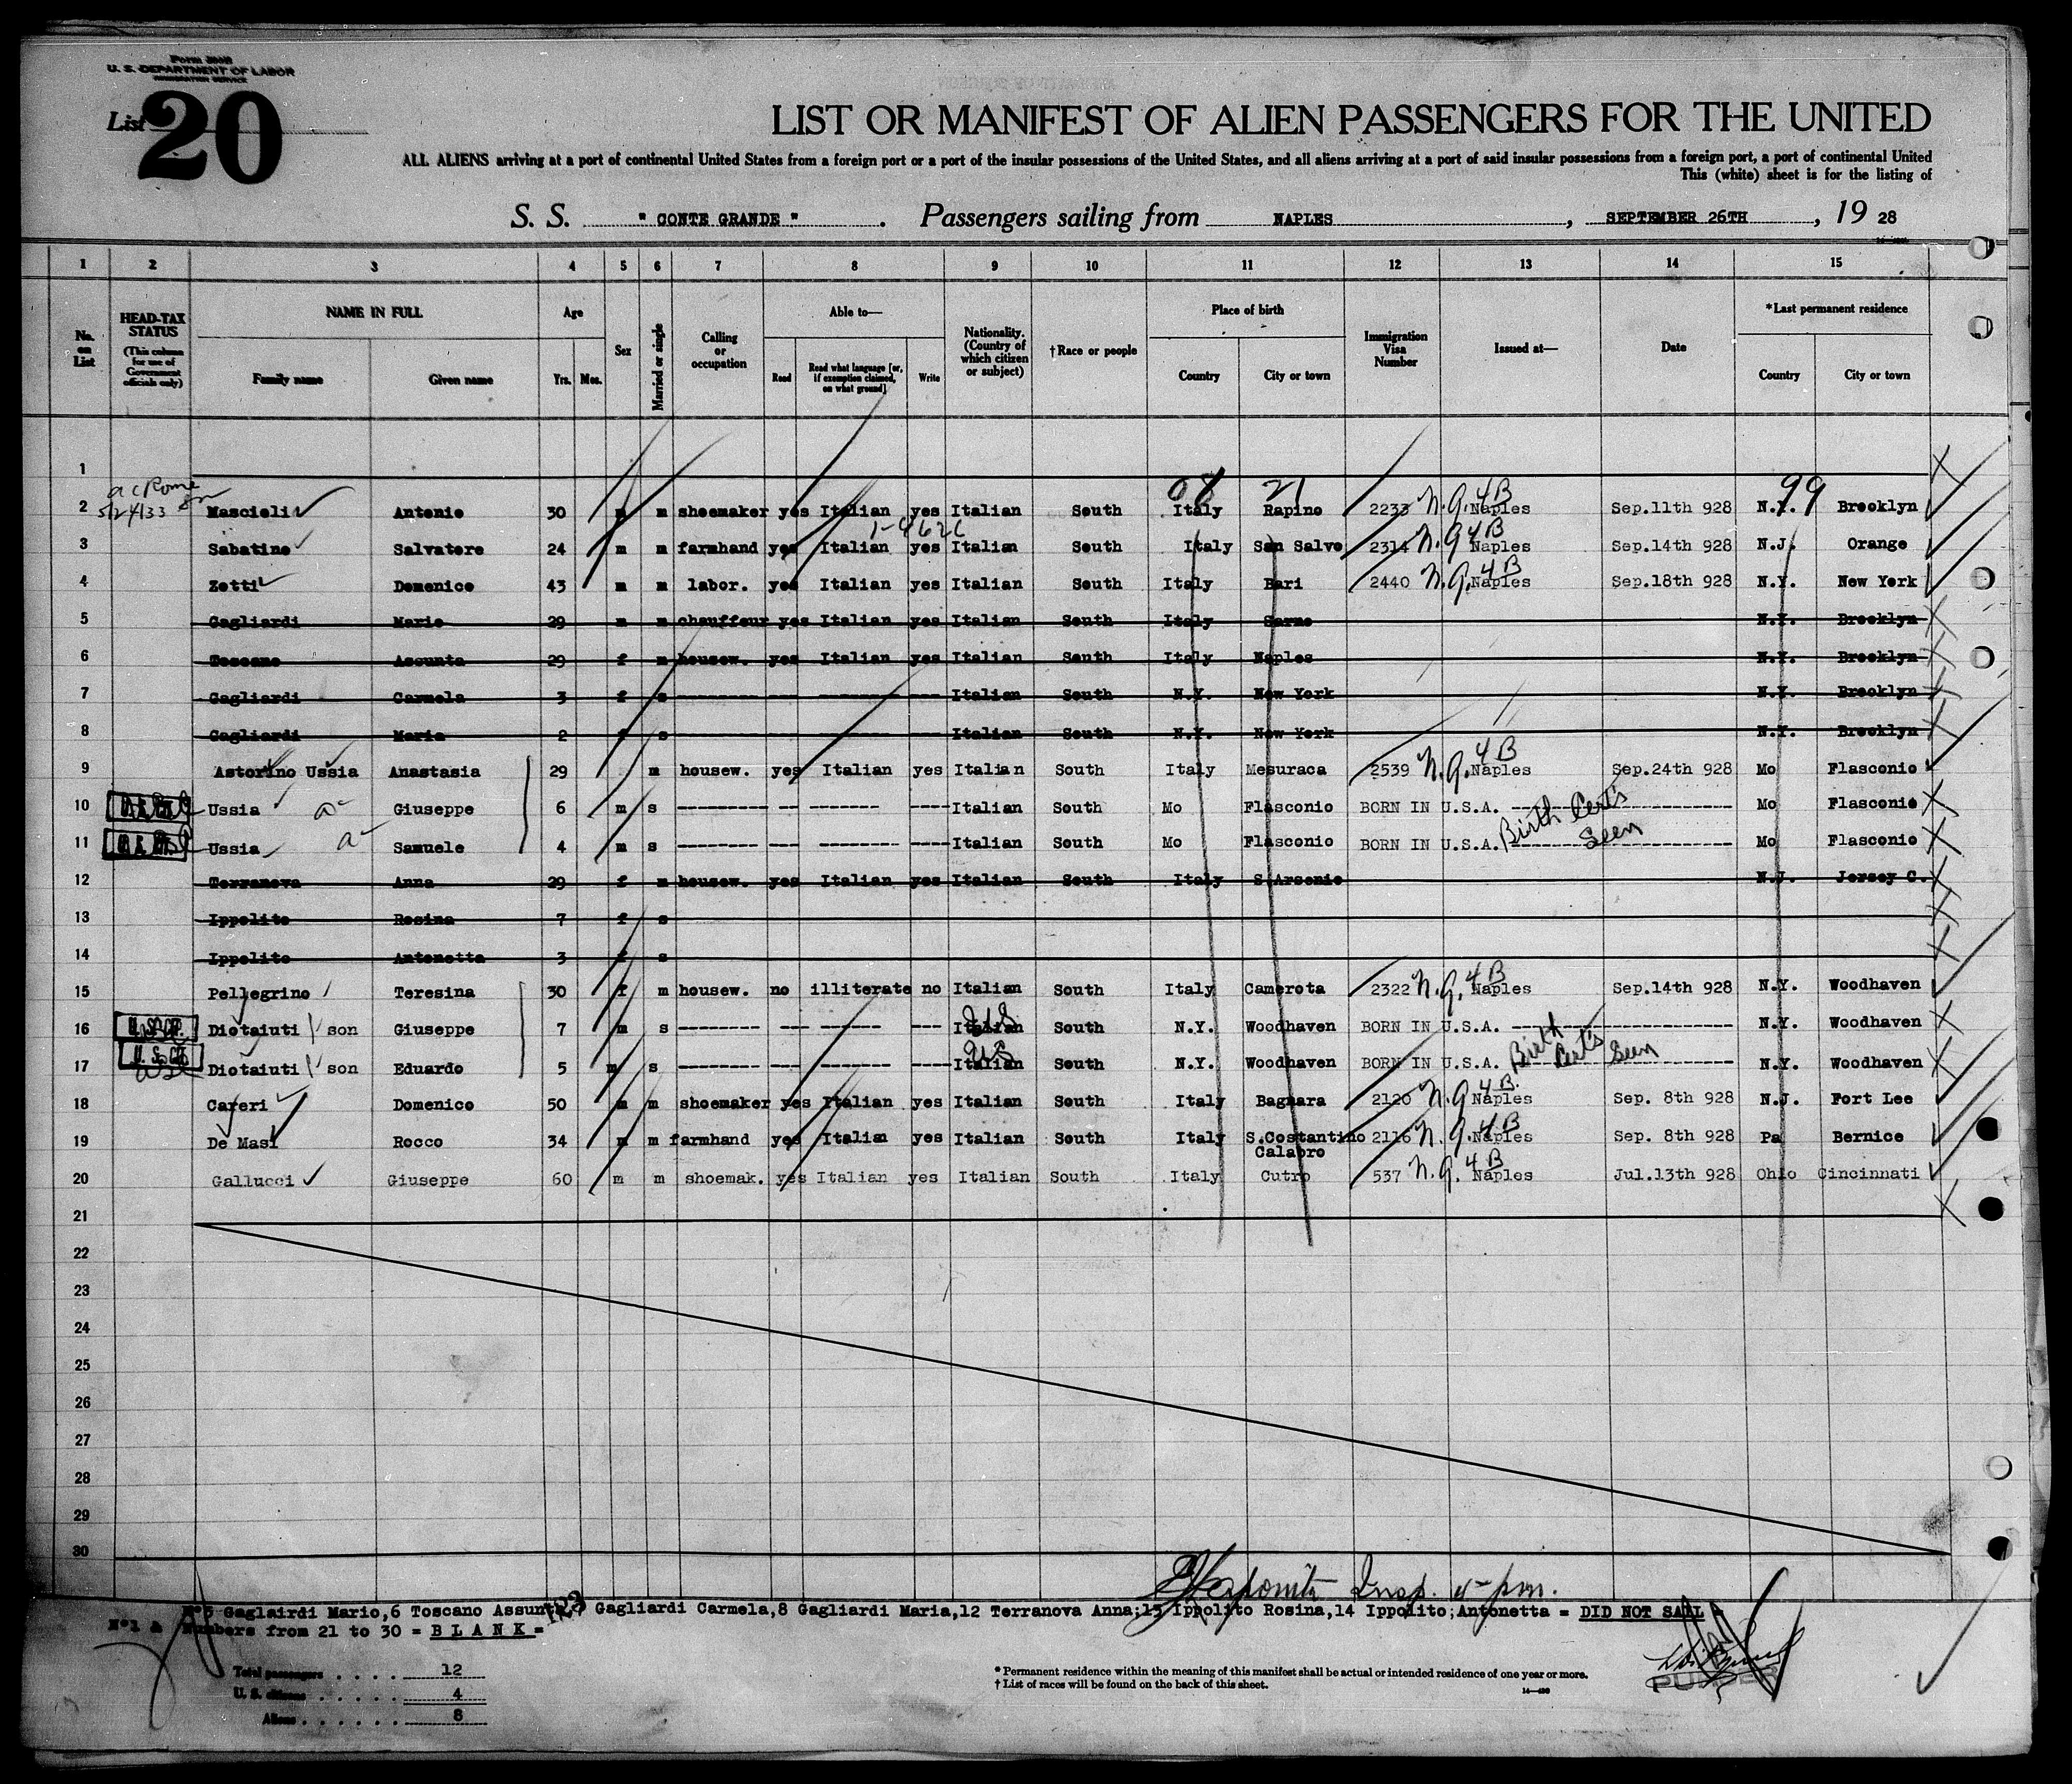 Form 500B
U. S. DEPARTMENT OF LABOR
IMMIGRATION SERVICE
List 20
LIST OR MANIFEST OF ALIEN PASSENGERS FOR THE UNITED
ALL ALIENS arriving at a port of continental United States from a foreign port or a port of the insular possessions of the United States, and all aliens arriving at a port of said insular possessions from a foreign port, a port of continental United
This (white) sheet is for the listing of
S. S. " CONTE GRANDE " . Passengers sailing from NAPLES , SEPTEMBER 26TH , 19 28
1 2 3 4 5 6 7 8 9 10 11 12 13 14 15
No. on List HEAD-TAX STATUS (This column for use of Government officials only) NAME IN FULL Family name Given name Age Yrs. Mos. Sex Married or single Calling or occupation Able to— Read Read what language [or, if exemption claimed, on what ground] Write Nationality. (Country of which citizen or subject) †Race or people Place of birth Country City or town Immigration Visa Number Issued at— Date *Last permanent residence Country City or town
1
ac Rome 08 21 99
2 524133 Mascioli Antonio 30 m m shoemaker yes Italian yes Italian South Italy Rapino 2233 N.Q. 4B Naples Sep.11th 928 N.Y. Brooklyn
3 Sabatino Salvatore 24 m m farmhand yes Italian yes Italian South Italy San Salvo 2314 N.Q 4B Naples Sep.14th 928 N.J. Orange
4 Zotti Domenico 43 m m labor. yes Italian yes Italian South Italy Bari 2440 N.Q. 4B Naples Sep.18th 928 N.Y. New York
5 Gagliardi Mario 29 m m chauffeur yes Italian yes Italian South Italy Sarno N.Y. Brooklyn
6 Toscano Assunta 29 f m housew. yes Italian yes Italian South Italy Naples N.Y. Brooklyn
7 Gagliardi Carmela 3 f s -------- -- -------- ---- Italian South N.Y. New York N.Y. Brooklyn
8 Gagliardi Maria 2 f s Italian South N.Y. New York N.Y. Brooklyn
9 Astorino Ussia Anastasia 29 m housew. yes Italian yes Italian South Italy Mesuraca 2539 N.Q. 4B Naples Sep.24th 928 Mo Flasconio
10 Ussia Giuseppe 6 m s -------- -- ------- ---- Italian South Mo Flasconio BORN IN U.S.A. Birth Certs Mo Flasconio
11 Ussia Samuele 4 m s -------- -- ------- ---- Italian South Mo Flasconio BORN IN U.S.A. Seen Mo Flasconio
12 Terranova Anna 29 f m housew. yes Italian yes Italian South Italy S.Arsenio N.J. Jersey C.
13 Ippolito Rosina 7 f s
14 Ippolito Antonetta 3 f s
15 Pellegrino Teresina 30 f m housew. no illiterate no Italian South Italy Camerota 2322 N.Q. 4B Naples Sep.14th 928 N.Y. Woodhaven
16 Diotaiuti son Giuseppe 7 m s -------- --- ------ --- Italian US South N.Y. Woodhaven BORN IN U.S.A. Birth N.Y. Woodhaven
17 U. S. Diotaiuti son Eduardo 5 m s -------- --- ------ --- Italian US South N.Y. Woodhaven BORN IN U.S.A. Certs Seen N.Y. Woodhaven
18 Careri Domenico 50 m m shoemaker yes Italian yes Italian South Italy Bagnara 2120 N.Q 4B. Naples Sep. 8th 928 N.J. Fort Lee
19 De Masi Rocco 34 m m farmhand yes Italian yes Italian South Italy S.Costantino Calabro 2116 N.Q. 4B Naples Sep. 8th 928 Pa Bernice
20 Gallucci Giuseppe 60 m m shoemak. yes Italian yes Italian South Italy Cutro 537 N.Q. 4B Naples Jul.13th 928 Ohio Cincinnati
21
22
23
24
25
26
27
28
29
30
Insp.
N°5 Gaglairdi Mario,6 Toscano Assunta,7 Gagliardi Carmela,8 Gagliardi Maria,12 Terranova Anna;13 Ippolito Rosina,14 Ippolito;Antonetta = DID NOT SAIL =
N°1 & Numbers from 21 to 30 = B L A N K =
Total passengers . . . . 12
U. S. citizens . . . . . 4
Aliens . . . . . . 8
* Permanent residence within the meaning of this manifest shall be actual or intended residence of one year or more.
† List of races will be found on the back of this sheet.
PURSER